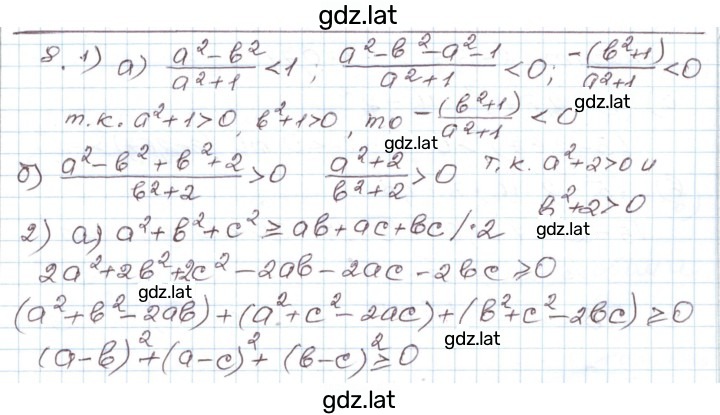 gdz.lat
8. 1) а) (a² - b²)/(a² + 1) < 1 ; (a² - b² - a² - 1)/(a² + 1) < 0; -(b² + 1)/(a² + 1) < 0
gdz.lat
т.к. a² + 1 > 0, b² + 1 > 0, то -(b² + 1)/(a² + 1) < 0
б) (a² - b² + b² + 2)/(b² + 2) > 0 (a² + 2)/(b² + 2) > 0 т.к. a² + 2 > 0 и
b² + 2 > 0
gdz.lat
2) а) a² + b² + c² ≥ ab + ac + bc /·2
2a² + 2b² + 2c² - 2ab - 2ac - 2bc ≥ 0
gdz.lat
(a² + b² - 2ab) + (a² + c² - 2ac) + (b² + c² - 2bc) ≥ 0
gdz.lat
(a - b)² + (a - c)² + (b - c)² ≥ 0
gdz.lat